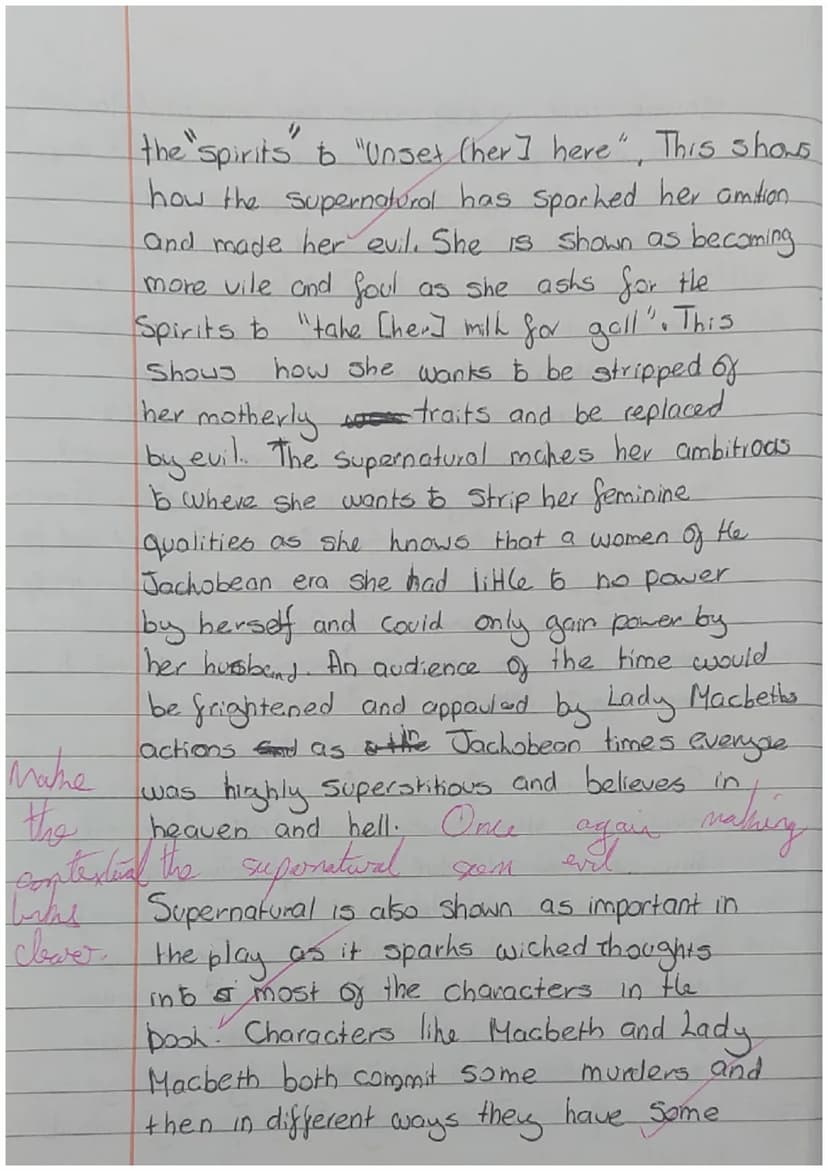 the "spirits" to "Unsex [her] here". This shows
how the supernatural has sparked her amition
and made her evil. She is shown as becoming
more vile and foul as she asks for the
Spirits to "take [her] milk for gall". This
shows how she wants to be stripped of
her motherly traits and be replaced
by evil. The supernatural makes her ambitious
to where she wants to strip her feminine
qualities as she knows that a women of the
Jachobean era she had little to no power
by herself and could only gain power by
her husband. An audience of the time would
be frightened and appauled by Lady Macbeths
actions as Jachobean times everyoe
was highly superstitious and believes in
heaven and hell. Once again making
the supernatural seem evil
Make
the
contextual
links
clearer.
Supernatural is also shown as important in
the play as it sparks wicked thoughts
into most of the characters in the
book. Characters like Macbeth and Lady
Macbeth both commit some murders and
then in different ways they have some